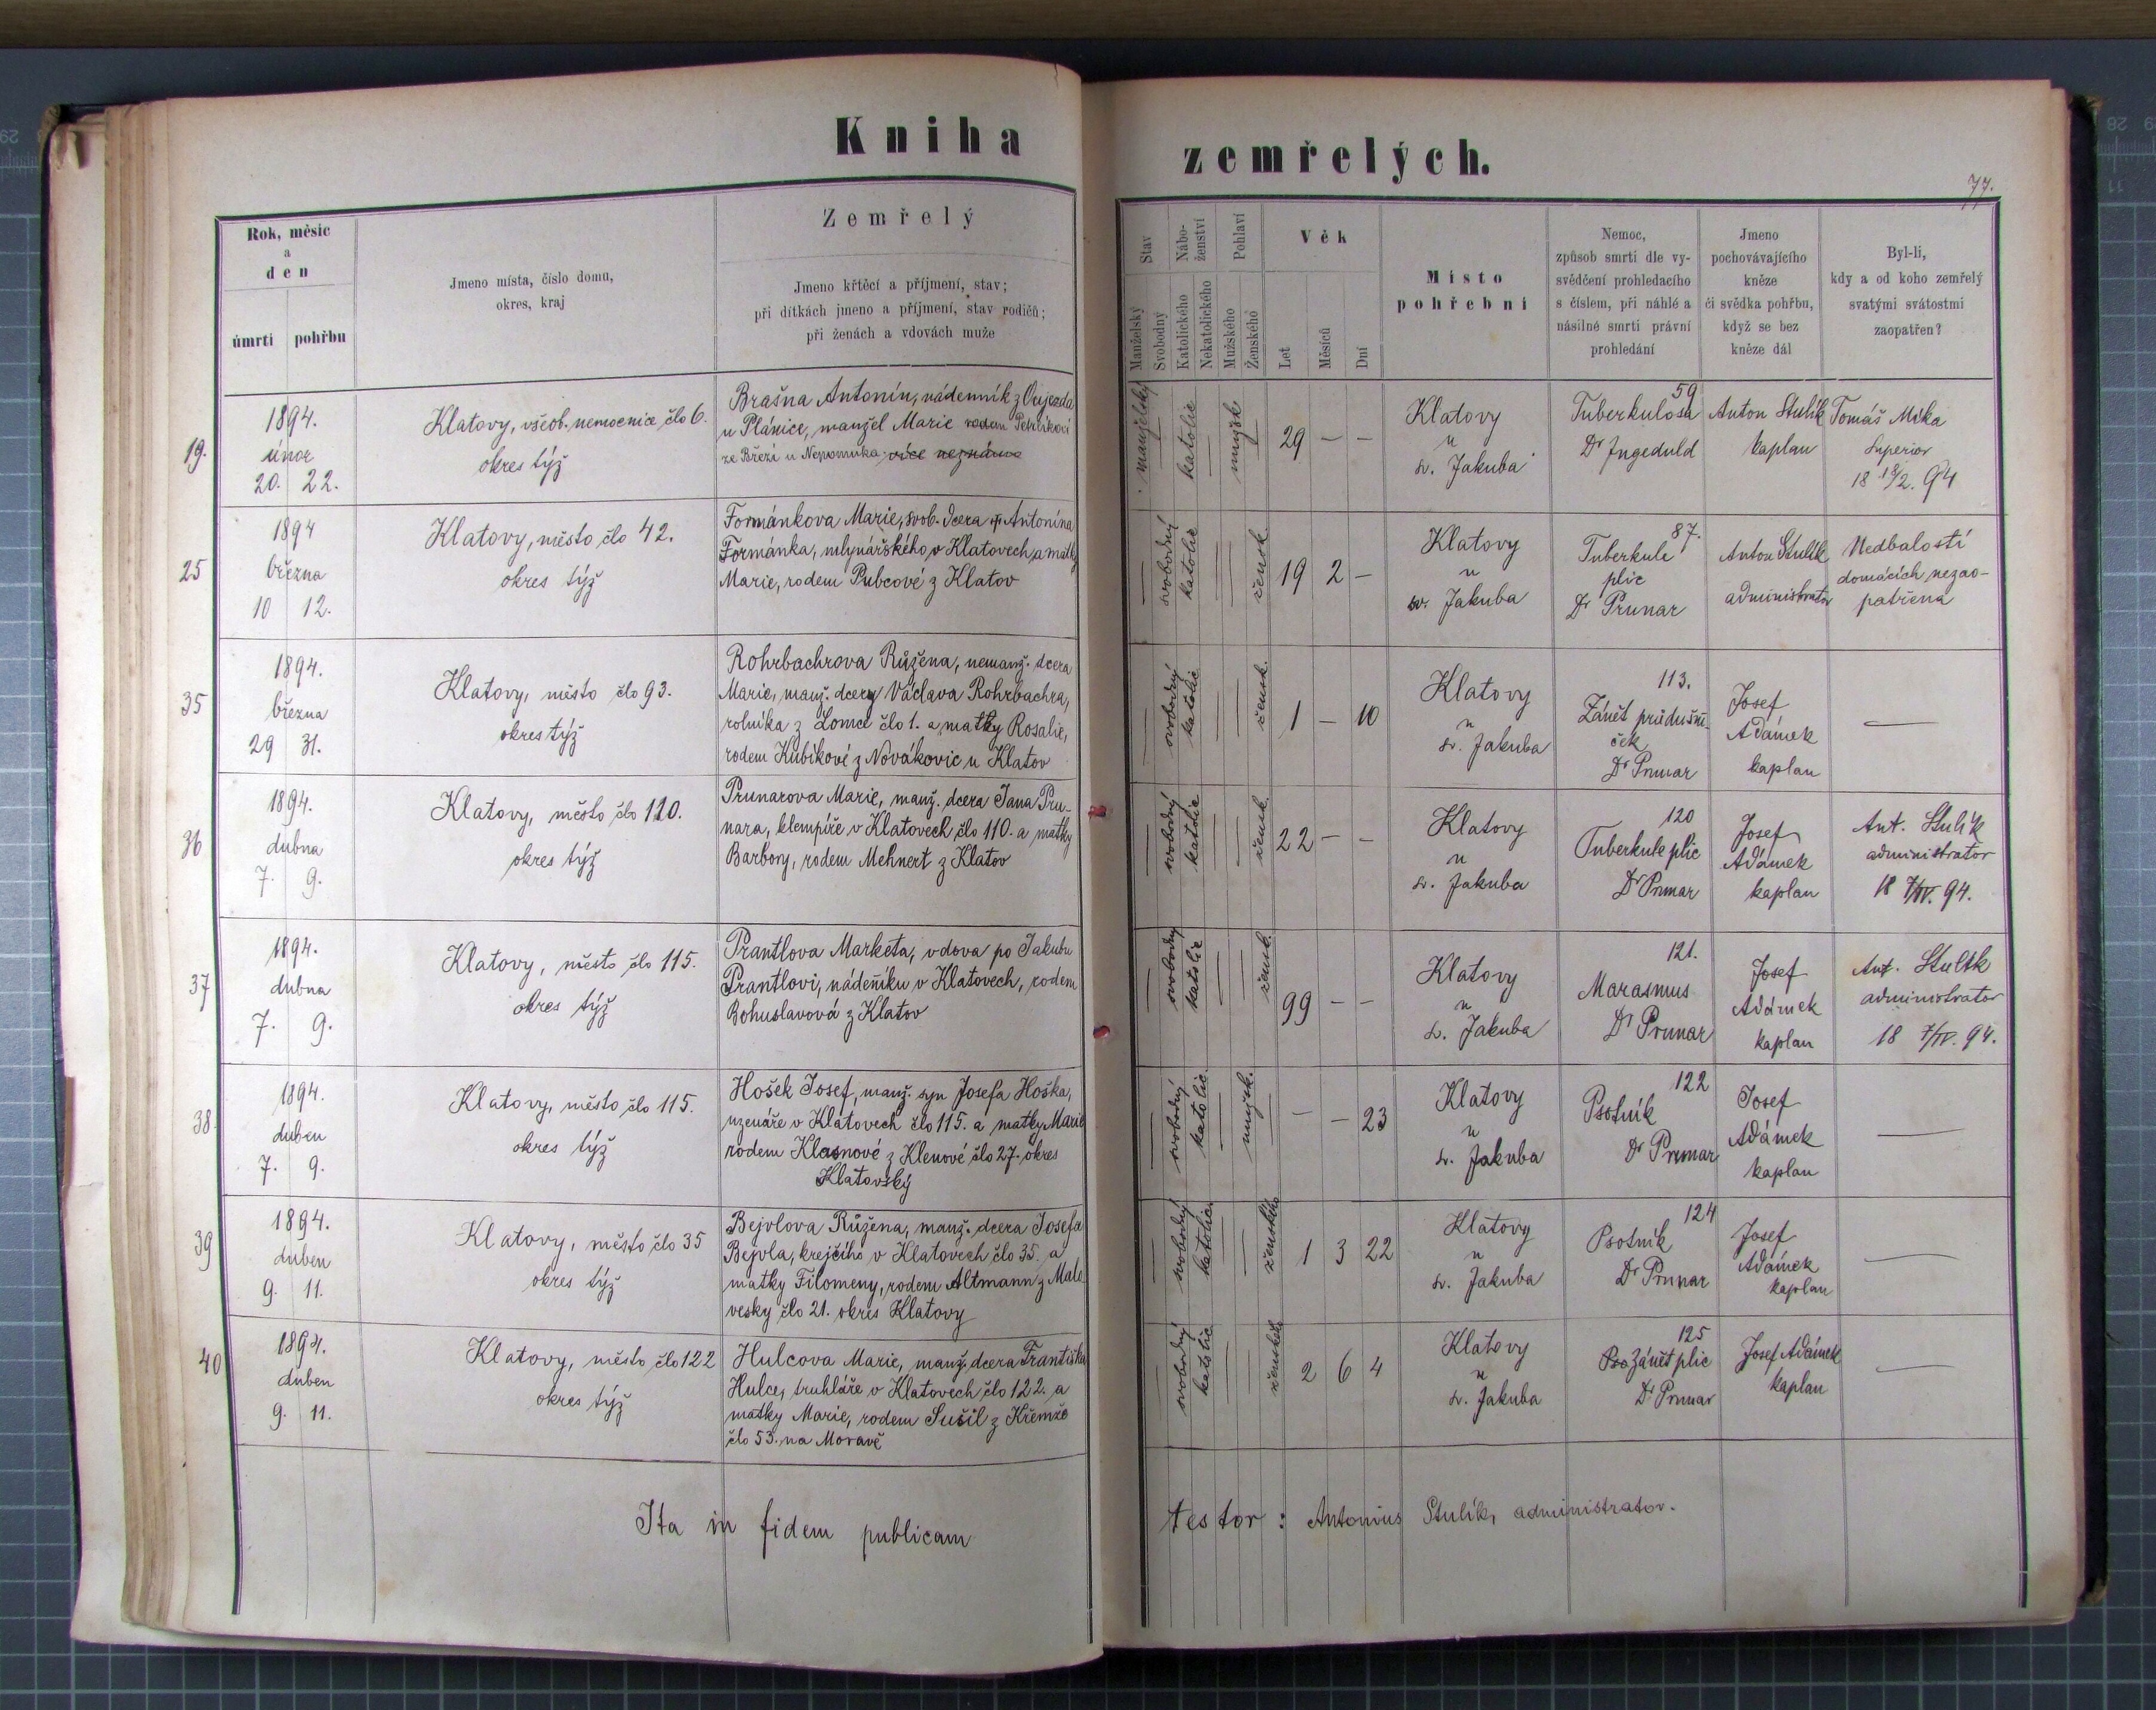 Kniha zemřelých.
77.
Rok, měsíc
a
den
úmrtí pohřbu
Jmeno místa, číslo domu,
okres, kraj
Zemřelý
Jmeno křtěcí a příjmení, stav;
při dítkách jmeno a příjmení, stav rodičů;
při ženách a vdovách muže
Stav
Manželský
Svobodný
Nábo-
ženství
Katolického
Nekatolického
Pohlaví
Mužského
Ženského
Věk
Let
Měsíců
Dní
Místo
pohřební
Nemoc,
způsob smrti dle vy-
svědčení prohledacího
s číslem, při náhlé a
násilné smrti právní
prohledání
Jmeno
pochovávajícího
kněze
či svědka pohřbu,
když se bez
kněze dál
Byl-li,
kdy a od koho zemřelý
svatými svátostmi
zaopatřen?
19.
1894.
únor
20. 22.
Klatovy, všeob. nemocnice člo 6.
okres týž
Brašna Antonín, nádenník z Oujezda
u Plánice, manžel Marie rodem
ze Březí u Nepomuka, více neznámo
manželský
katolic
mužsk
29 — —
Klatovy
u
sv. Jakuba
59
Tuberkulosa
Dr Ingeduld
Anton Stulík
kaplan
Tomáš Míka
Superior
18 18/2. 94
25
1894
března
10 12.
Klatovy, město člo 42.
okres týž
Formánkova Marie, svob. dcera Antonína
Formánka, mlynářského v Klatovech, a matky
Marie, rodem Pubcové z Klatov
svobodný
katolic
žensk
19 2 —
Klatovy
u
sv. Jakuba
87.
Tuberkule
plic
Dr Prunar
Anton Stulík
administrator
Nedbalostí
domácích nezao-
patřena
35
1894.
března
29 31.
Klatovy, město člo 93.
okres týž
Rohrbachrova Růžena, nemanž. dcera
Marie, manž. dcery Václava Rohrbachra,
rolníka z Lomce člo 1. a matky Rosalie,
rodem Kubíkové z Novákovic u Klatov
svobodný
katolic
žensk.
1 — 10
Klatovy
u
sv. Jakuba
113.
Zánět průdušni-
ček
Dr Prunar
Josef
Adámek
kaplan
—
36
1894.
dubna
7. 9.
Klatovy, město člo 110.
okres týž
Prunarova Marie, manž. dcera Jana Pru-
nara, klempíře v Klatovech člo 110. a matky
Barbory, rodem Mehnert z Klatov
svobodný
katolic
žensk.
22 — —
Klatovy
u
sv. Jakuba
120
Tuberkule plic
Dr Prunar
Josef
Adámek
kaplan
Ant. Stulík
administrator
18 7/IV. 94.
37
1894.
dubna
7. 9.
Klatovy, město člo 115.
okres týž
Prantlova Marketa, vdova po Jakubu
Prantlovi, nádeňíku v Klatovech, rodem
Bohuslavová z Klatov
svobodný
katolic
žensk.
99 — —
Klatovy
u
sv. Jakuba
121.
Marasmus
Dr Prunar
Josef
Adámek
kaplan
Ant. Stulík
administrator
18 7/IV. 94.
38.
1894.
duben
7. 9.
Klatovy, město člo 115.
okres týž
Hošek Josef, manž. syn Josefa Hoška,
uzenáře v Klatovech člo 115. a matky Marie
rodem Klasnové z Klenové člo 27. okres
Klatovský
svobodný
katolic.
mužsk.
— — 23
Klatovy
u
sv. Jakuba
122
Psotník
Dr Prunar
Josef
Adámek
kaplan
—
39
1894.
duben
9. 11.
Klatovy, město člo 35
okres týž
Bejvlova Růžena, manž. dcera Josefa
Bejvla, krejčího v Klatovech člo 35. a
matky Filomeny, rodem Altmann z Male-
vesky člo 21. okres Klatovy
svobodný
katolic.
ženského
1 3 22
Klatovy
u
sv. Jakuba
124
Psotník
Dr Prunar
Josef
Adámek
kaplan
—
40
1894.
duben
9. 11.
Klatovy, město člo 122
okres týž
Hulcova Marie, manž. dcera Františka
Hulce, truhláře v Klatovech člo 122. a
matky Marie, rodem Sušil z Křemže
člo 53. na Moravě
svobodný
katolic
ženského
2 6 4
Klatovy
u
sv. Jakuba
125
Pso Zánět plic
Dr Prunar
Josef Adámek
kaplan
—
Ita in fidem publicam testor: Antonius Stulík, administrator.